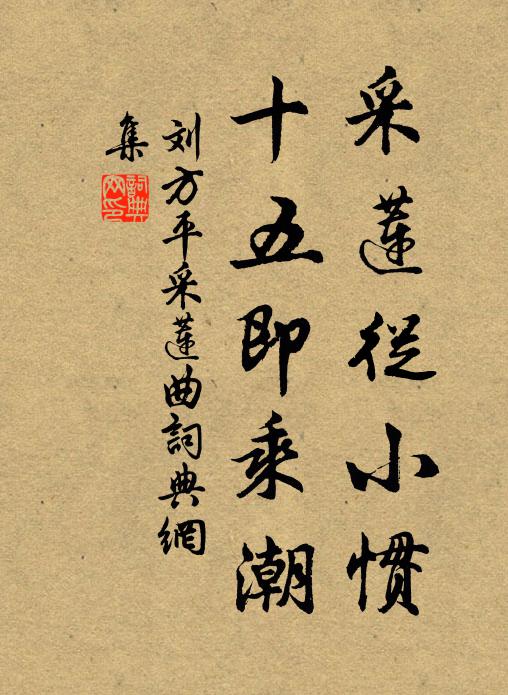 采蓮從小慣
十五即乘潮
刘方平采蓮曲詞典網
集
詞典
网印